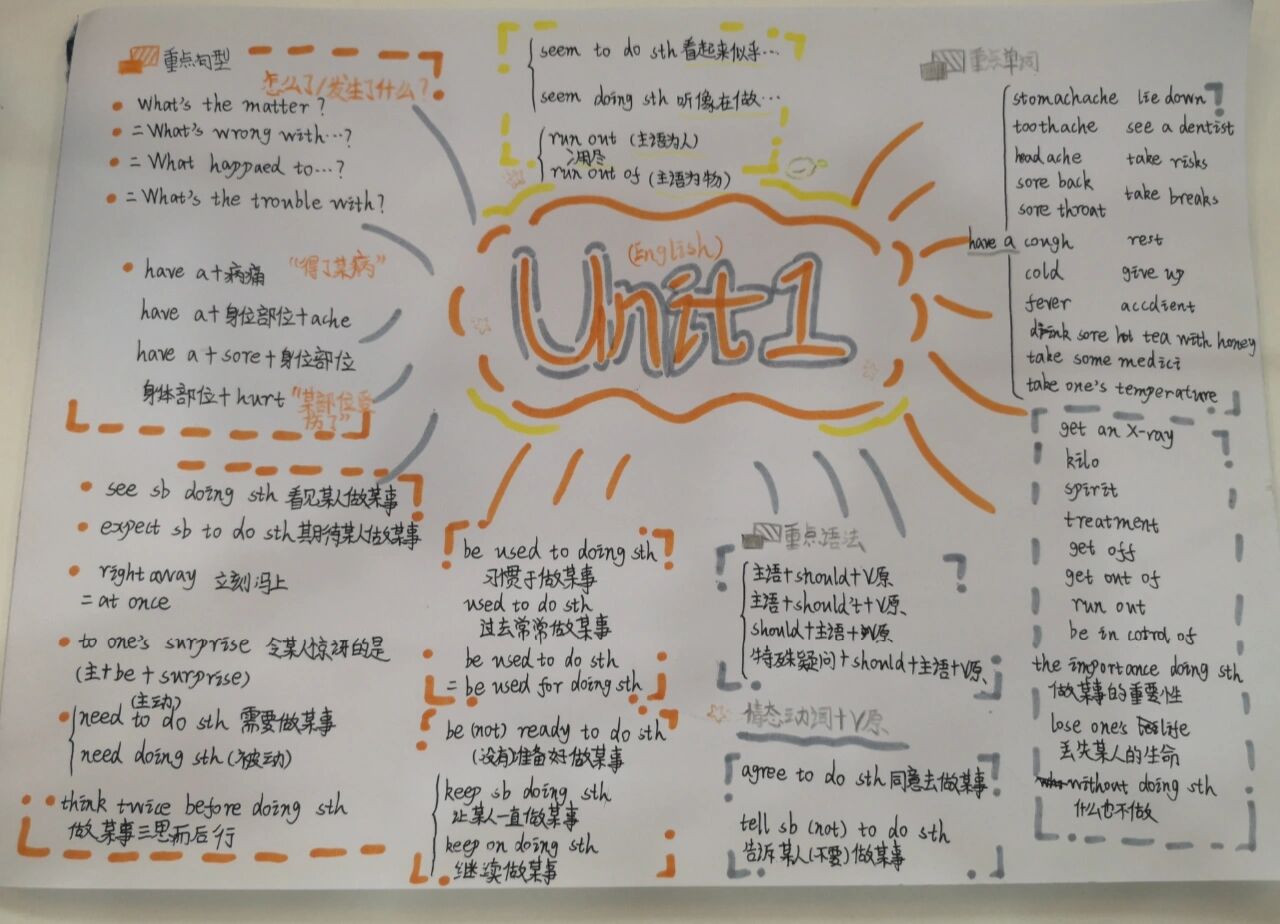 重点句型
怎么了/发生了什么?
What's the matter?
= What's wrong with…?
= What happaed to…?
= What's the trouble with?
have a+病痛 “得了某病”
have a+身位部位+ache
have a+sore+身位部位
身体部位+hurt “某部位受
伤了”
seem to do sth 看起来似乎…
seem doing sth 听像在做…
run out (主语为人)
用尽
run out of (主语为物)
(English)
Unit1
重点单词
have a
stomachache lie down
toothache see a dentist
headache take risks
sore back
take breaks
sore throat
cough rest
cold give up
fever accdient
drink sore hot tea with honey
take some medici
take one's temperature
get an X-ray
kilo
spirit
treatment
get off
get out of
run out
be in cotrol of
the importance doing sth
做某事的重要性
lose one's life
丢失某人的生命
without doing sth
什么也不做
see sb doing sth 看见某人做某事
expect sb to do sth 期待某人做某事
right away 立刻冯上
= at once
to one's surprise 令某人惊讶的是
(主+be+surprise)
(主动)
need to do sth 需要做某事
need doing sth (被动)
think twice before doing sth
做某事三思而后行
be used to doing sth
习惯于做某事
used to do sth
过去常常做某事
be used to do sth
= be used for doing sth
be (not) ready to do sth
(没有)准备好做某事
keep sb doing sth
让某人一直做某事
keep on doing sth
继续做某事
重点语法
主语+should+V原
主语+should't+V原
should+主语+V原
特殊疑问+should+主语+V原
情态动词+V原
agree to do sth 同意去做某事
tell sb (not) to do sth
告诉某人(不要)做某事